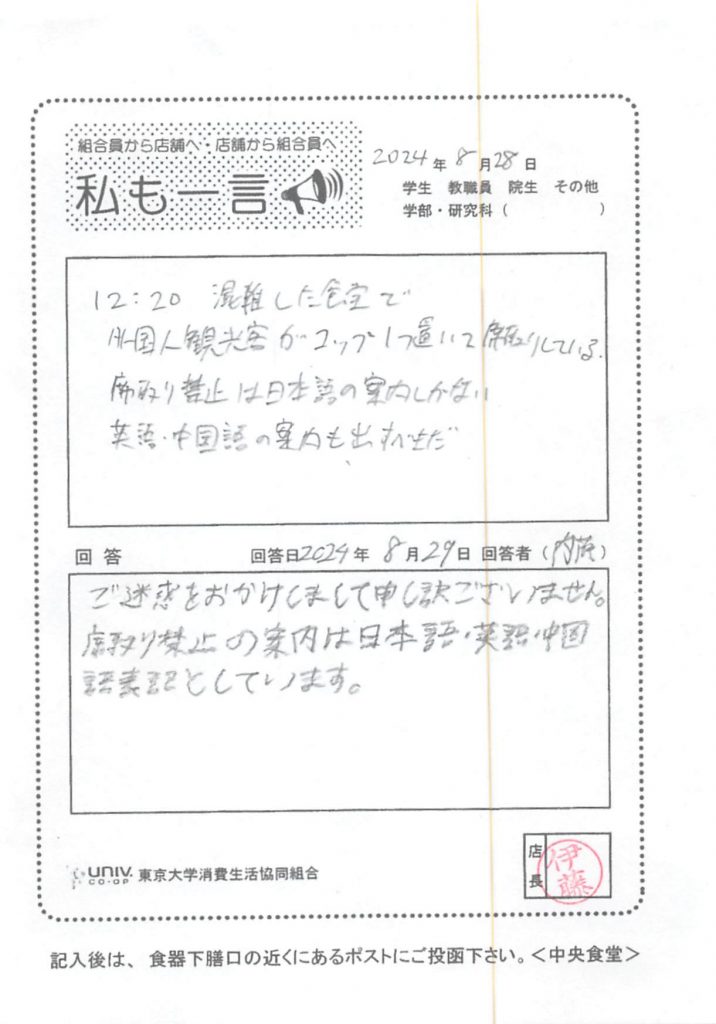 組合員から店舗へ・店舗から組合員へ
私も一言
2024年 8月28日
学生 教職員 院生 その他
学部・研究科( )
12:20 混雑した食堂で
外国人観光客がコップ1つ置いて席取りしている.
席取り禁止は日本語の案内しかない
英語・中国語の案内も出すべきだ
回答 回答日2024年 8月29日 回答者(内藤)
ご迷惑をおかけしまして申し訳ございません。
席取り禁止の案内は日本語・英語・中国
語表記としています。
UNIV. CO-OP 東京大学消費生活協同組合
店長 伊藤
記入後は、食器下膳口の近くにあるポストにご投函下さい。<中央食堂>